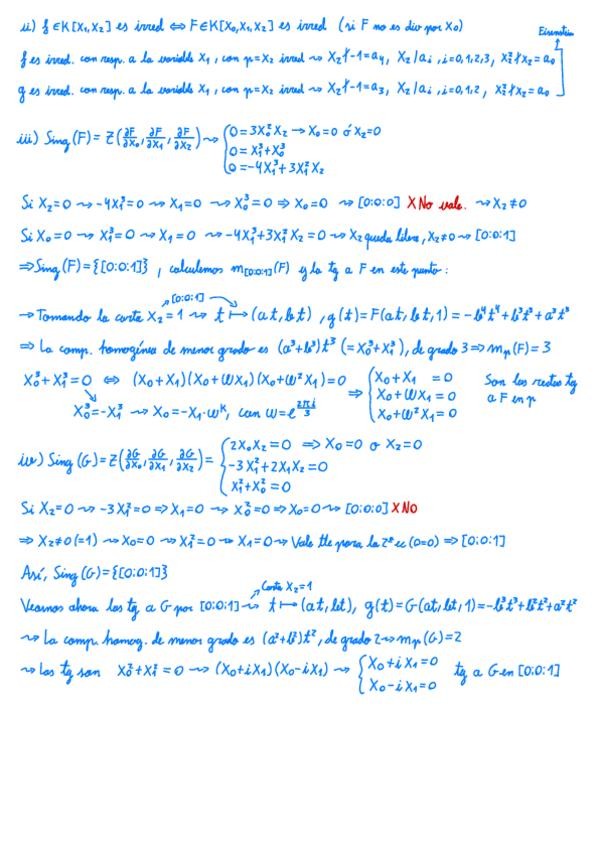 ii) f∈K[X₁,X₂] es irred ⇔ F∈K[X₀,X₁,X₂] es irred (si F no es div por X₀)
Eisenstein
f es irred. con resp. a la variable X₁, con p=X₂ irred ⇝ X₂∤-1=a₄, X₂|aᵢ, i=0,1,2,3, X₂²∤X₂=a₀
g es irred. con resp. a la variable X₁, con p=X₂ irred ⇝ X₂∤-1=a₃, X₂|aᵢ, i=0,1,2, X₂²∤X₂=a₀
iii) Sing(F)= Z(∂F/∂X₀, ∂F/∂X₁, ∂F/∂X₂) ⇝ { 0=3X₀²X₂ → X₀=0 ó X₂=0
0=X₁³+X₀³
0=-4X₁³+3X₁²X₂
Si X₂=0 ⇝ -4X₁³=0 ⇝ X₁=0 ⇝ X₀³=0 ⇒ X₀=0 ⇝ [0:0:0] X No vale. ⇝ X₂≠0
Si X₀=0 ⇝ X₁³=0 ⇝ X₁=0 ⇝ -4X₁³+3X₁²X₂=0 ⇝ X₂ queda libre, X₂≠0 ⇝ [0:0:1]
⇒Sing(F)={[0:0:1]}, calculemos m[0:0:1](F) y la tg a F en este punto:
[0:0:1]
→Tomando la carta X₂=1 ⇝ t ↦ (at,bt), g(t)=F(at,bt,1)=-b⁴t⁴+b³t³+a³t³
⇒ La comp. homogénea de menor grado es (a³+b³)t³ (=X₀³+X₁³), de grado 3⇒mₚ(F)=3
X₀³+X₁³=0 ⇔ (X₀+X₁)(X₀+ωX₁)(X₀+ω²X₁)=0 ⇒ { X₀+X₁ =0
X₀+ωX₁ =0
X₀+ω²X₁=0
Son las rectas tg a F en p
X₀³=-X₁³ ⇝ X₀=-X₁·ωᵏ, con ω=e^(2πi/3)
iv) Sing(G)=Z(∂G/∂X₀, ∂G/∂X₁, ∂G/∂X₂)= { 2X₀X₂=0 ⇒X₀=0 o X₂=0
-3X₁²+2X₁X₂=0
X₁²+X₀²=0
Si X₂=0 ⇝ -3X₁²=0⇒X₁=0 ⇝ X₀²=0⇒X₀=0⇝ [0:0:0] X NO
⇒ X₂≠0(=1) ⇝X₀=0 ⇝X₁²=0⇝ X₁=0⇝ Vale tb para la 2ª ec (0=0) ⇒ [0:0:1]
Así, Sing(G)={[0:0:1]}
Carta X₂=1
Veamos ahora las tg a G por [0:0:1]⇝ t↦(at,bt), g(t)=G(at,bt,1)=-b³t³+b²t²+a²t²
⇝ La comp. homog. de menor grado es (a²+b²)t², de grado 2⇝mₚ(G)=2
⇝Las tg son X₀²+X₁²=0 ⇝ (X₀+iX₁)(X₀-iX₁) ⇝ { X₀+iX₁=0
X₀-iX₁=0
tg a G en [0:0:1]